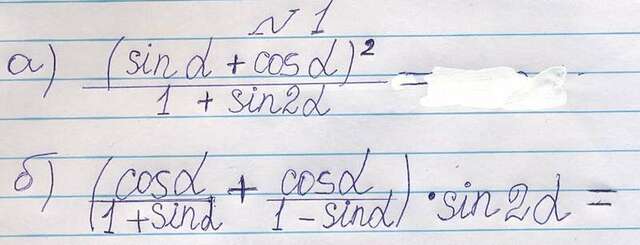 N 1
а) (sin α + cos α)² / (1 + sin2α) =
б) (cos α / (1 + sin α) + cos α / (1 - sin α)) · sin 2α =